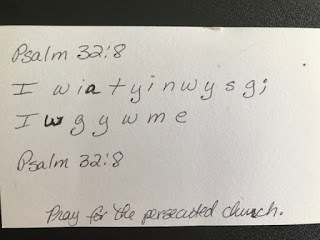 Psalm 32:8
I w i a t y i n w y s g ;
I w g y w m e
Psalm 32:8
Pray for the persecuted church.